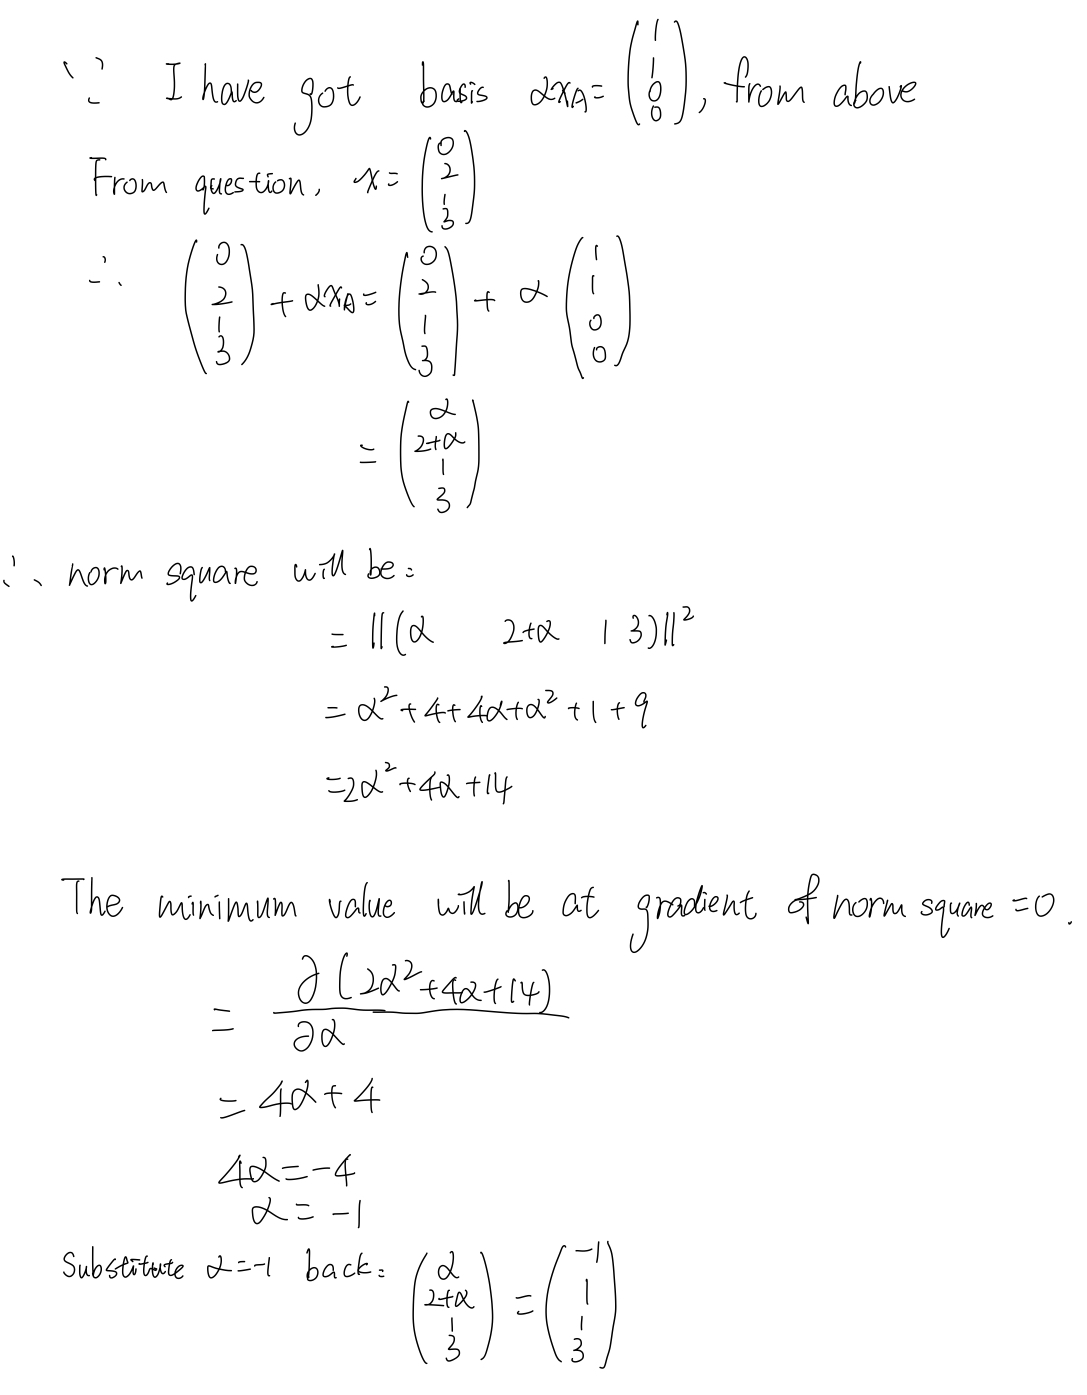 ∵ I have got basis αx_A = (1 1 0 0), from above
From question, x = (0 2 1 3)
∴ (0 2 1 3) + αx_A = (0 2 1 3) + α (1 1 0 0)
= (α 2+α 1 3)
∴ norm square will be:
= ||(α 2+α 1 3)||²
= α² + 4 + 4α + α² + 1 + 9
= 2α² + 4α + 14
The minimum value will be at gradient of norm square = 0.
= ∂(2α² + 4α + 14) / ∂α
= 4α + 4
4α = -4
α = -1
Substitute α = -1 back: (α 2+α 1 3) = (-1 1 1 3)